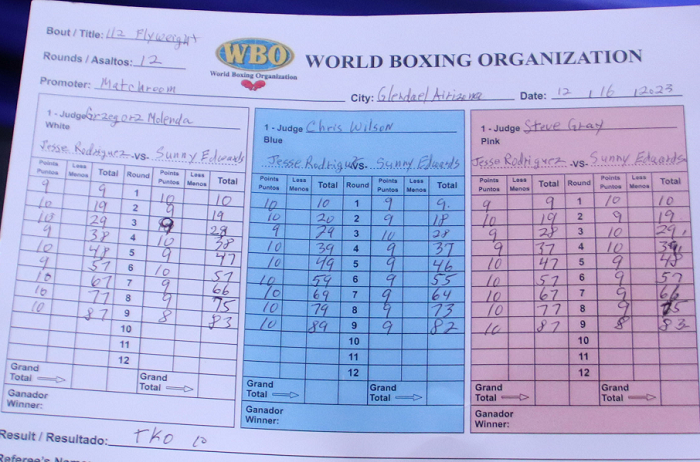 Bout / Title: 112 Flyweight
Rounds / Asaltos: 12
Promoter: Matchroom
WBO
World Boxing Organization
WORLD BOXING ORGANIZATION
City: Glendael Airizona Date: 12 / 16 /2023
1 - Judge Grzegorz Molenda
White
Jesse Rodriguez -VS- Sunny Edwards
Points Puntos Less Menos Total Round Points Puntos Less Menos Total
9 9 1 10 10
10 19 2 9 19
10 29 3 9 28
9 38 4 10 38
10 48 5 9 47
9 57 6 10 57
10 67 7 9 66
10 77 8 9 75
10 87 9 8 83
10
11
12
Grand Total Grand Total
Ganador
Winner:
1 - Judge Chris Wilson
Blue
Jesse Rodriguez -VS- Sunny Edwards
Points Puntos Less Menos Total Round Points Puntos Less Menos Total
10 10 1 9 9.
10 20 2 9 18
9 29 3 10 28
10 39 4 9 37
10 49 5 9 46
10 59 6 9 55
10 69 7 9 64
10 79 8 9 73
10 89 9 9 82
10
11
12
Grand Total Grand Total
Ganador
Winner:
1 - Judge Steve Gray
Pink
Jesse Rodriguez -VS- Sunny Edwards
Points Puntos Less Menos Total Round Points Puntos Less Menos Total
9 9 1 10 10
10 19 2 9 19
9 28 3 10 29
9 37 4 10 39
10 47 5 9 48
10 57 6 9 57
10 67 7 9 66
10 77 8 9 75
10 87 9 8 83
10
11
12
Grand Total Grand Total
Ganador
Winner:
Result / Resultado: TKO